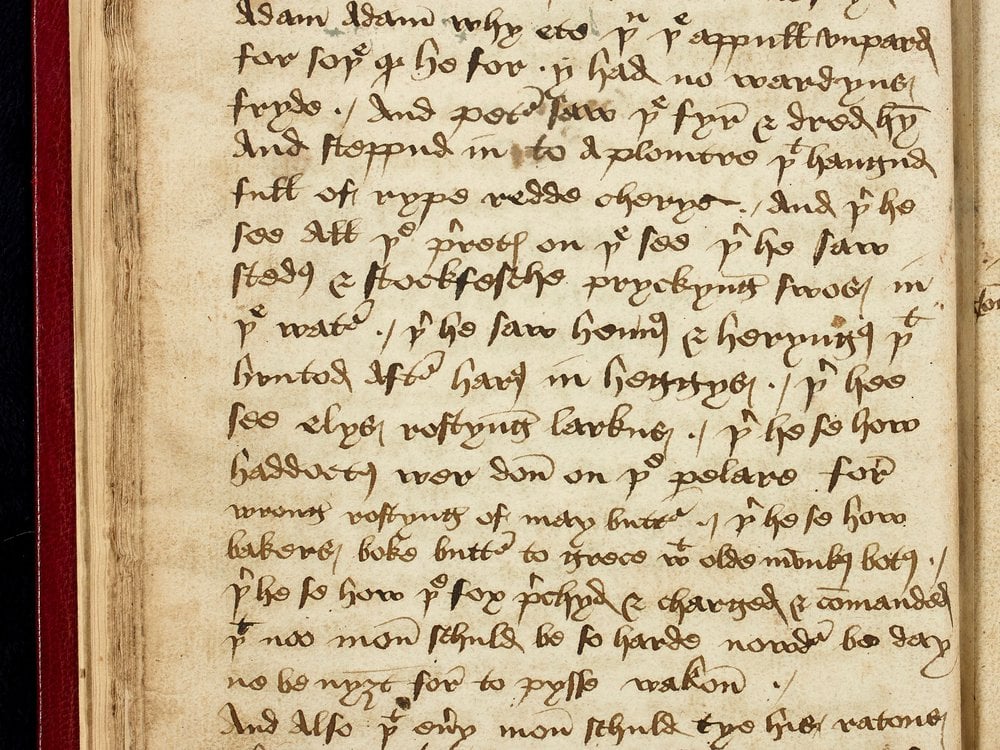 Adam Adam why ete þu þe appull vnpard
for soþe qþ he for . y had no wardyns
fryde ./ And peter saw þe fyr & dred hȳ
And steppud in to A plomtre þt hangud
full of rype redde cherys ./ And þr he
see All þe þret on þe see þr he saw
stedꝭ & stockfesche pryckyng swos in
þe water ./ þr he saw hennꝭ & heryngꝭ þt
huntod After hartꝭ in heggys ./ þr hee
see elys rostyng larkus ./ þr he se how
haddoctꝭ wer don on þe pelare for
wrong rostyng of may butter ./ þr he se how
bakers boke butter to grece wt olde munkꝭ botꝭ ./
þr he se how þe fox prechyd & charged & cōmanded
þt noo mon schuld be so harde nowder be day
ne be nyȝt for to pysse wakon ./
And Also þt euery mon schuld tye his ratons